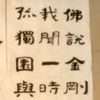 佛說金剛
我聞一時
孫獨園與